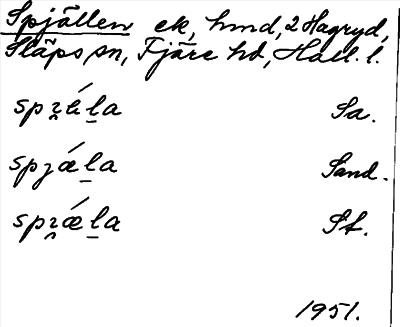 Spjällen ek, hmd, 2 Hagryd,
Släps sn, Fjäre hd, Hall. l.
spʒ̯ǽḻa Sa.
spjǽḻa Sand.
spʒ̯ǽḻa St.
1951.